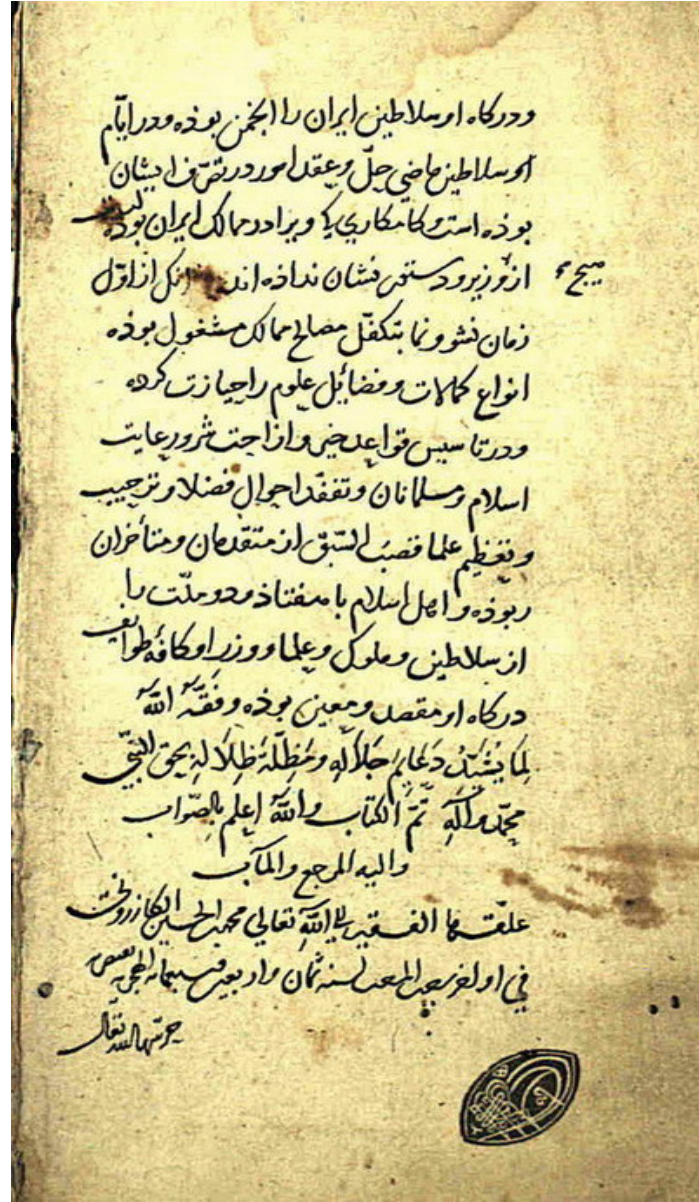 ودرکاه او سلاطین ایران را انجمن بوذه ودر ایّام
او سلاطین ماضی حلّ وعقد امور در تصرّف ایشان
بوذه است وکامکاری یک وبرا در ممالک ایران بوذه لیکن
هیچ
از وزیر ودستوری نشان نداذه اند از اوّل
زمان نشو ونما بتکفّل مصالح ممالک مشغول بوذه
انواع کمالات وفضائل علوم را حیازت کرده
ودر تاسیس قواعد خیر وازاحت شرور ورعایت
اسلام ومسلمانان وتفقّد احوال فضلا وترحیب
وتعظیم علما قصب السّبق از متقدمان ومتأخران
ربوذه واهل اسلام با هفتاد ودو ملّت را
از سلاطین وملوک وعلما ووزرا وکافۀ طوایف
درکاه او مقصد ومعین بوذه وفّقه اللّٰه
لِمَا یُشیّد دَعَایِمَ جَلالِهِ ومَظِلّة ظِلَالِهِ بحق النّبیّ
محمّد وآلِهِ تمّ الکتاب واللّٰه اعلم بالصّواب
والیه المرجع والمآب
علّقها الفقیر الی اللّٰه تعالی محمد الحسین الکازرونی
فی اواخر رجب المرجب لسنه ثمان واربعین وسبعمائه
حرسها اللّٰه تعالی